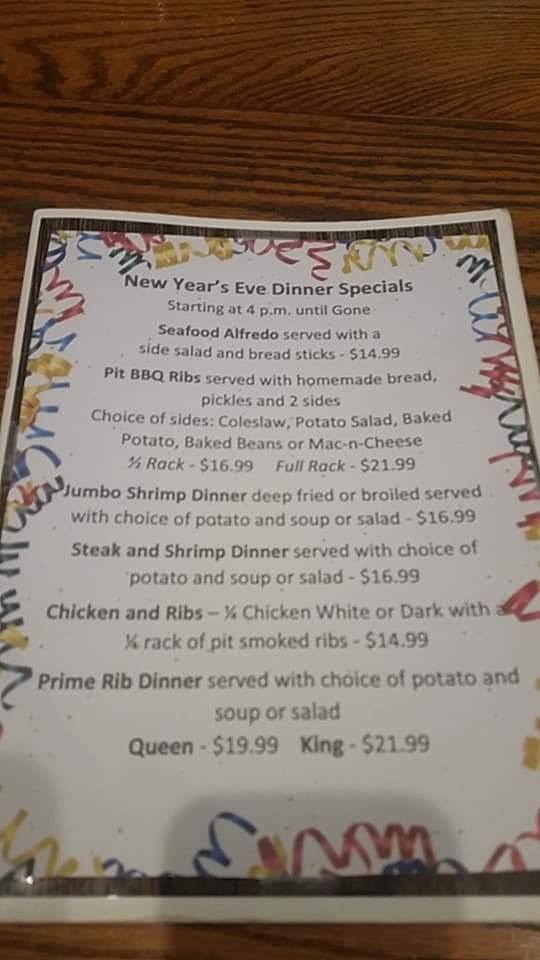 New Year's Eve Dinner Specials
Starting at 4 p.m. until Gone
Seafood Alfredo served with a
side salad and bread sticks - $14.99
Pit BBQ Ribs served with homemade bread,
pickles and 2 sides
Choice of sides: Coleslaw, Potato Salad, Baked
Potato, Baked Beans or Mac-n-Cheese
½ Rack - $16.99 Full Rack - $21.99
Jumbo Shrimp Dinner deep fried or broiled served
with choice of potato and soup or salad - $16.99
Steak and Shrimp Dinner served with choice of
potato and soup or salad - $16.99
Chicken and Ribs – ¼ Chicken White or Dark with a
¼ rack of pit smoked ribs - $14.99
Prime Rib Dinner served with choice of potato and
soup or salad
Queen - $19.99 King - $21.99